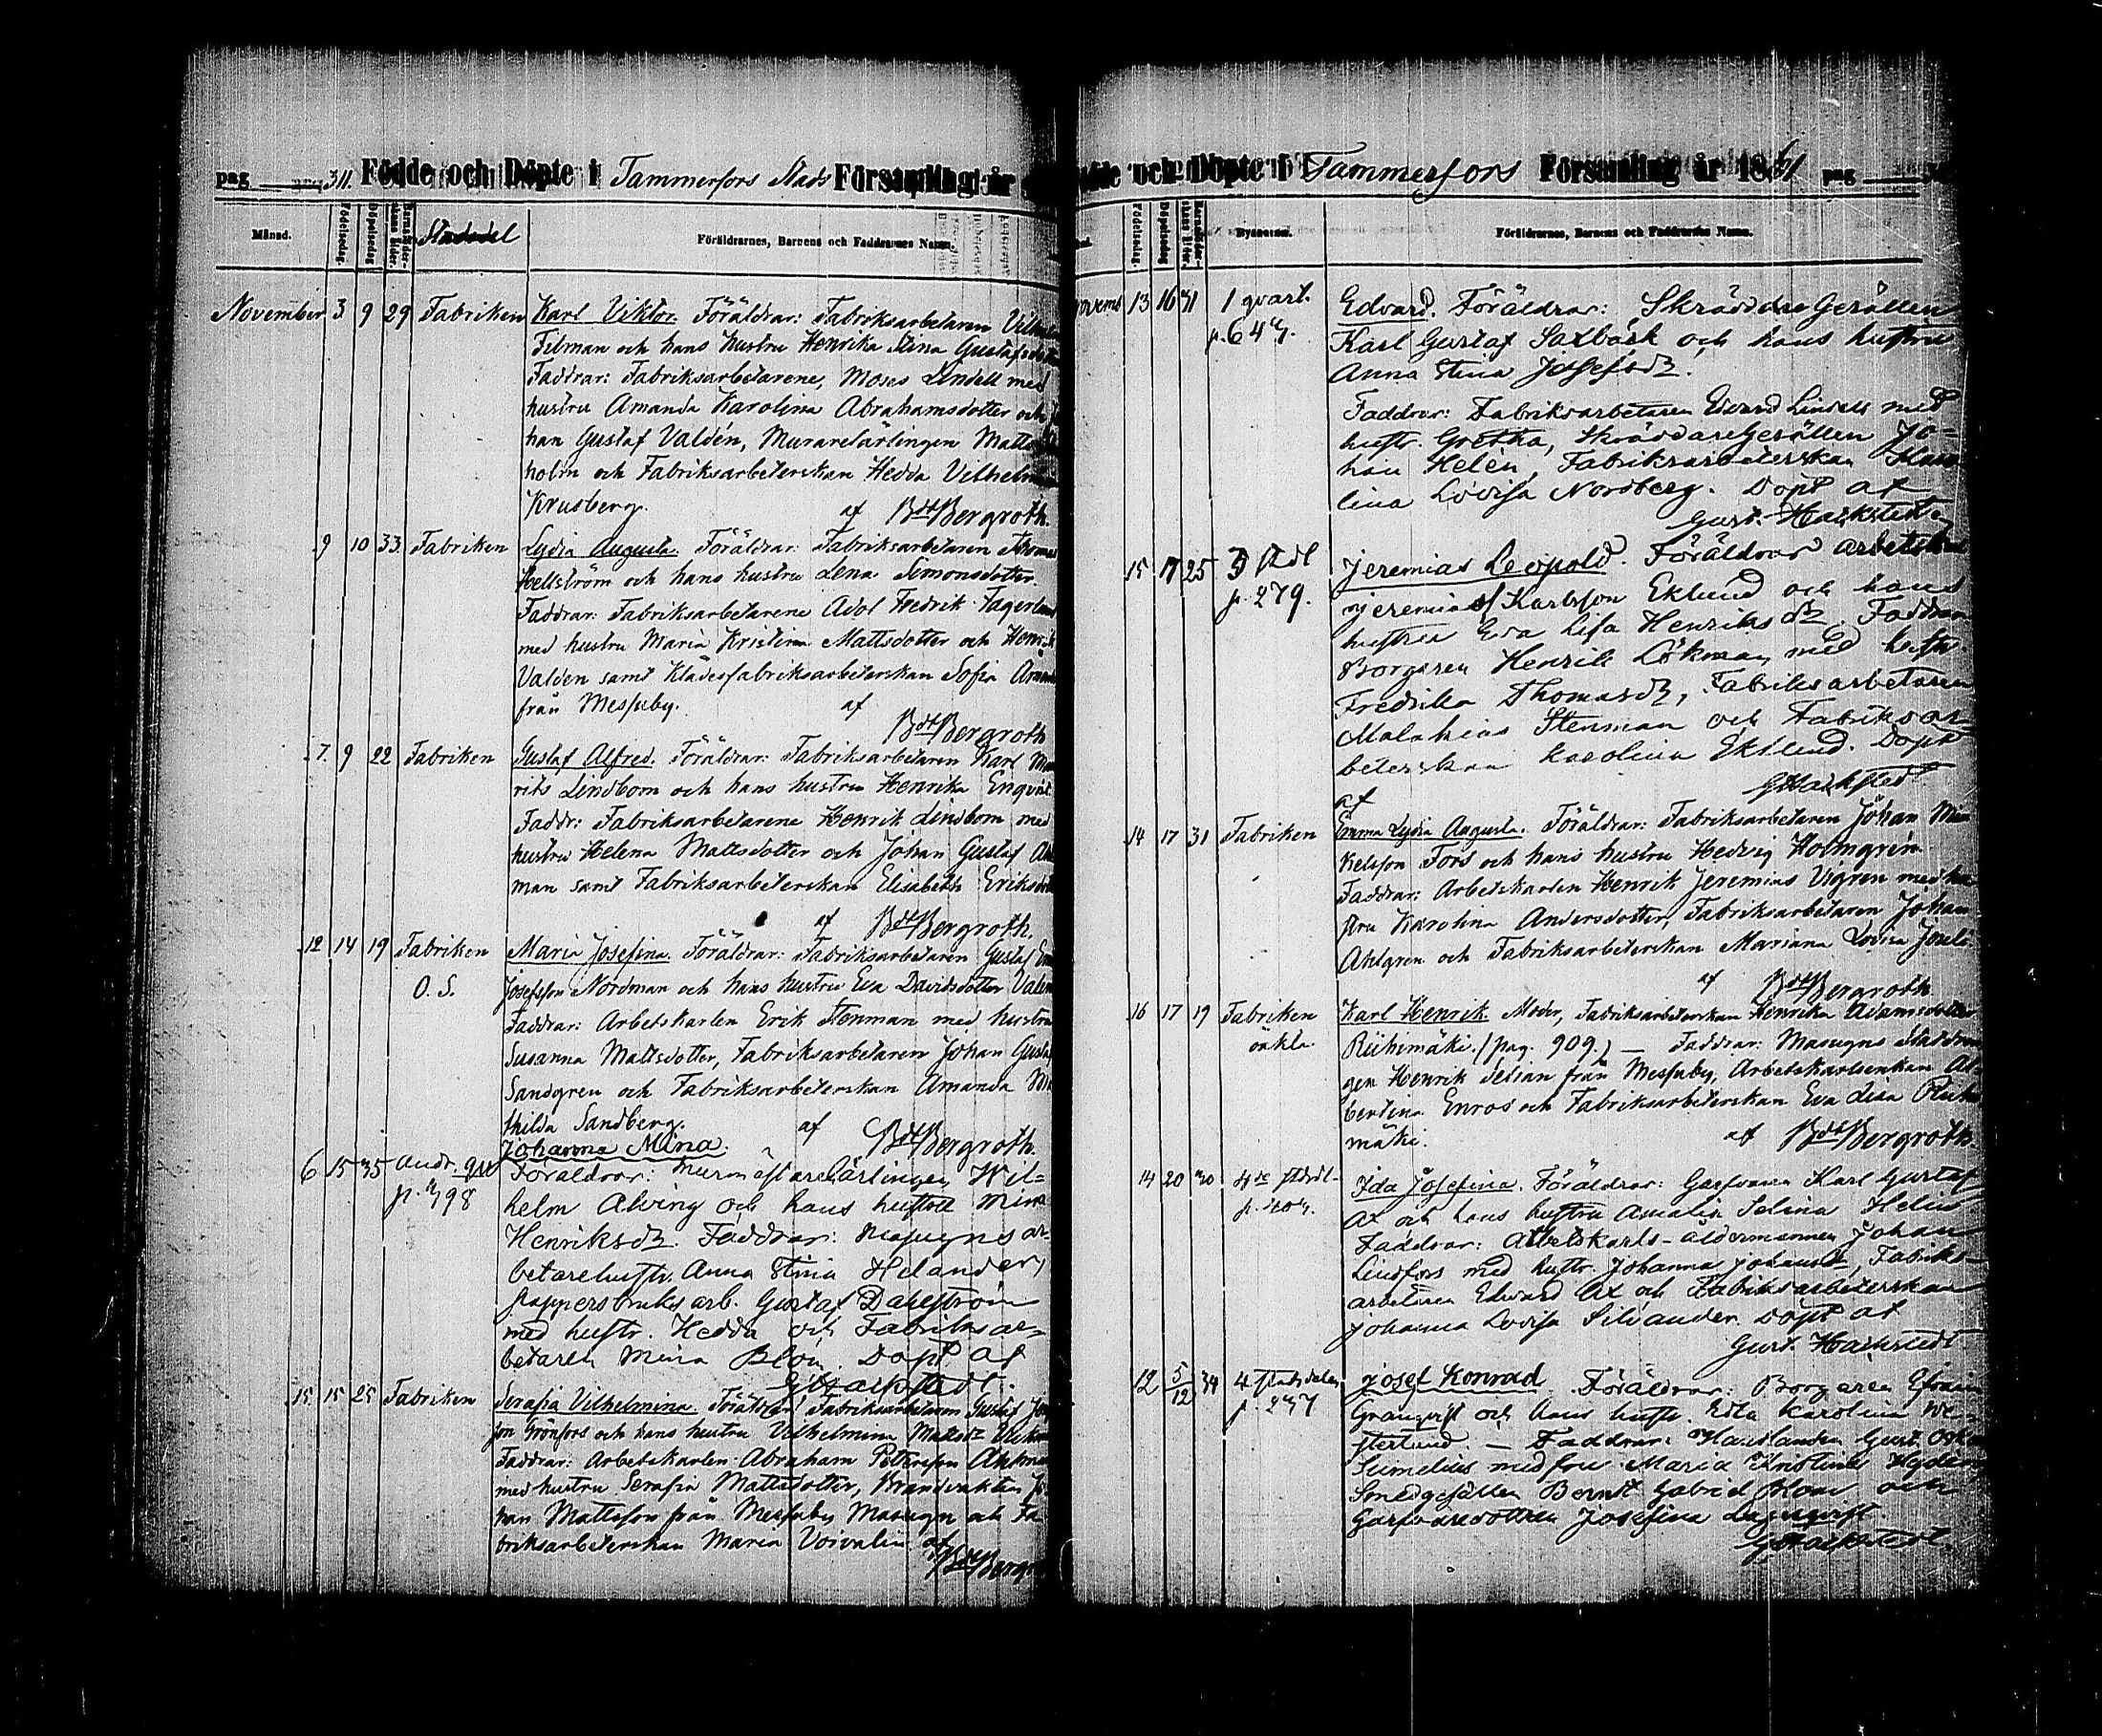 pag 311. Födde och Döpte i Tammerfors Stads Församling år
Månad. Födelsedag. Döpelsedag Barnaföderskans ålder. Stadsdel Föräldrarnes, Barnens och Faddrarnes Namn.
November 3 9 29 Fabriken Karl Viktor. Föräldrar: Fabriksarbetaren
Filman och hans hustru Henrika Stina
Faddrar: Fabriksarbetarene, Moses Lindell med
hustru Amanda Karolina Abrahamsdotter och
han Gustaf Valdén, Murarelärlingen
holm och Fabriksarbeterskan Hedda
Krusberg. af Bdt Bergroth.
9 10 33 Fabriken Lydia Augusta. Föräldrar: Fabriksarbetaren
Hellström och hans hustru Lena Simonsdotter.
Faddrar: Fabriksarbetarene Adol Fredrik
med hustru Maria Kristina Mattsdotter och
Valden samt Klädesfabriksarbeterskan Sofia
från Messuby. af
Bdt Bergroth
7. 9 22 Fabriken Gustaf Alfred. Föräldrar: Fabriksarbetaren Karl
rits Lindbom och hans hustru Henrika
Faddr: Fabriksarbetarene Henrik Lindbom med
hustru Helena Mattsdotter och Johan Gustaf
man samt Fabriksarbeterskan Elisabeth
af Bdt Bergroth.
12 14 19 Fabriken Maria Josefina. Föräldrar: Fabriksarbetaren Gustaf
O. S. Josefsson Nordman och hans hustru Eva Davidsdotter
Faddrar: Arbetskarlen Erik Stenman med hustru
Susanna Mattsdotter, Fabriksarbetaren Johan
Sandgren och Fabriksarbeterskan Amanda
thilda Sandberg. af Bdt Bergroth.
Johanna Mina.
6 15 35 Andr. qu Föräldrar: Murmästarelärlingen Wil-
p. 798 helm Alving och hans hustru Mina
Henriksdr. Faddrar: Masugns ar-
betarehustr. Anna Stina Helander,
Pappersbruks arb. Gustaf Dahlström
med hustr. Hedda och Fabriksar-
betaren Mina Blom. Döpt af
G Hackstedt.
15. 15 25 Fabriken Serafia Vilhelmina. Föräldrar: Fabriksarbetaren Gustaf
son Grönfors och hans hustru Vilhelmina
Faddrar: Arbetskarlen Abraham Pettersson
med hustru Serafia Mattsdotter, Brandvakten
han Mattsson från Messuby Masugn och Fa
briksarbeterskan Maria Voivalin af
Bdt
och Döpte i Tammerfors Församling år 1861 pag
Födelsedag. Döpelsedag Bynamn. Föräldrarnes, Barnens och Faddrarnes Namn.
13 16 41 1 qvart. Edvard. Föräldrar: Skräddare Gesällen
p. 647. Karl Gustaf Saxbäck och hans hustru
Anna Stina Josefsdr.
Faddrar: Fabriksarbetaren Edvard Lindell med
hustr. Gretha, SkräddareGesällen Jo-
han Helén, Fabriksarbeterskan
lina Lovisa Nordberg. Döpt af
Gust. Hackstedt.
15 17 25 3 stdl Jeremias Leopold. Föräldrar
p. 279. Jeremias Karlsson Eklund och hans
hustru Eva Lisa Henriksdr. Faddrar
Borgaren Henrik Lökman med hustr.
Fredrika Thomasdr, Fabriksarbetaren
Malakias Stenman och Fabriksar-
beterskan Karolina Eklund. Döpt
af G Hackstedt
14 17 31 Fabriken Emma Lydia Augusta. Föräldrar: Fabriksarbetaren Johan
kelsson Fors och hans hustru Hedvig Holmgrén
Faddrar: Arbetskarlen Henrik Jeremias Vigren med hu
stru Karolina Andersdotter, Fabriksarbetaren Johan
Ahlgren och Fabriksarbeterskan Mariana Lovisa
af Bdt Bergroth
16 17 19 Fabriken Karl Henrik. Moder, Fabriksarbeterskan Henrika Adamsdotter
oäkta. Riihimäki. (pag. 909.) — Faddrar: Masugns
gen Henrik Selian från Messuby, Arbetskarlsenkan Al-
bertina Enros och Fabriksarbeterskan Eva Lisa
mäki. af Bdt Bergroth.
14 20 20 4de stdsdl. Ida Josefina. Föräldrar: Garfvaren Karl Gustaf
Ax och hans hustru Amalia Selina Helin
Faddrar: Arbetskarls-åldermannen Johan
Lindfors med hustr. Johanna Johansdr, Fabriks-
arbetaren Edward Ax och Fabriksarbeterskan
Johanna Lovisa Silvander. Döpt af
Gust. Hackstedt
12 5/12 34 4 Stadsdelen Josef Konrad. Föräldrar: Borgaren Efraim
p. 277 Granqvist och hans hustr. Edla Karolina We-
sterlund. — Faddrar: Handlanden Gust.
Sumelius med fru Maria Kristina
Smedgesällen Bernt Gabriel Blom och
Garfvaredottren Josefina Lagerqvist.
G Hackstedt.